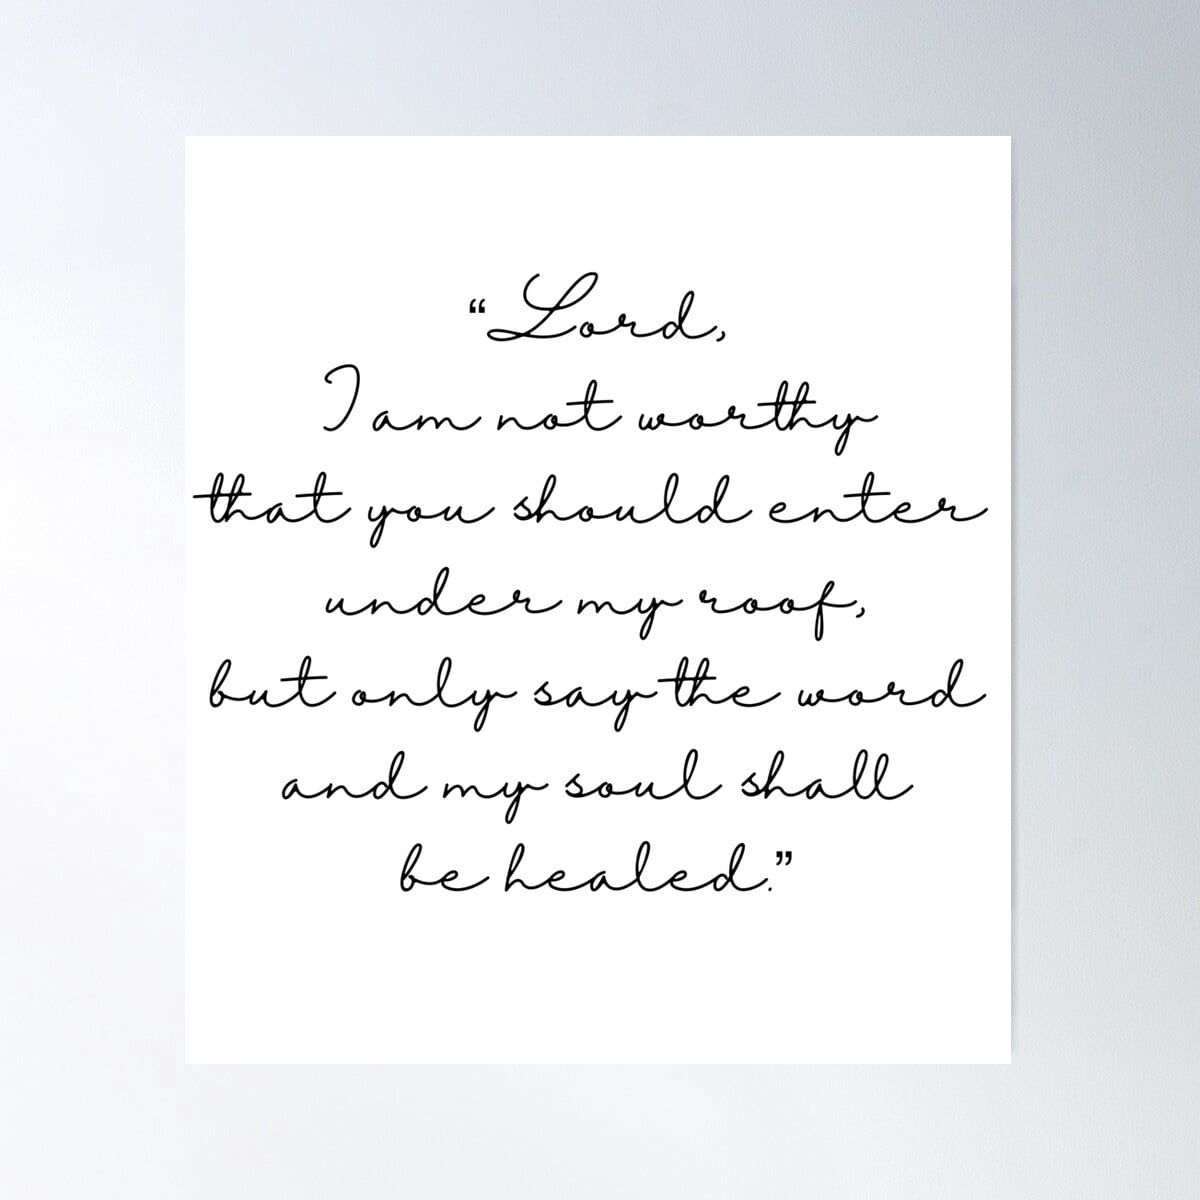 “Lord,
I am not worthy
that you should enter
under my roof,
but only say the word
and my soul shall
be healed.”